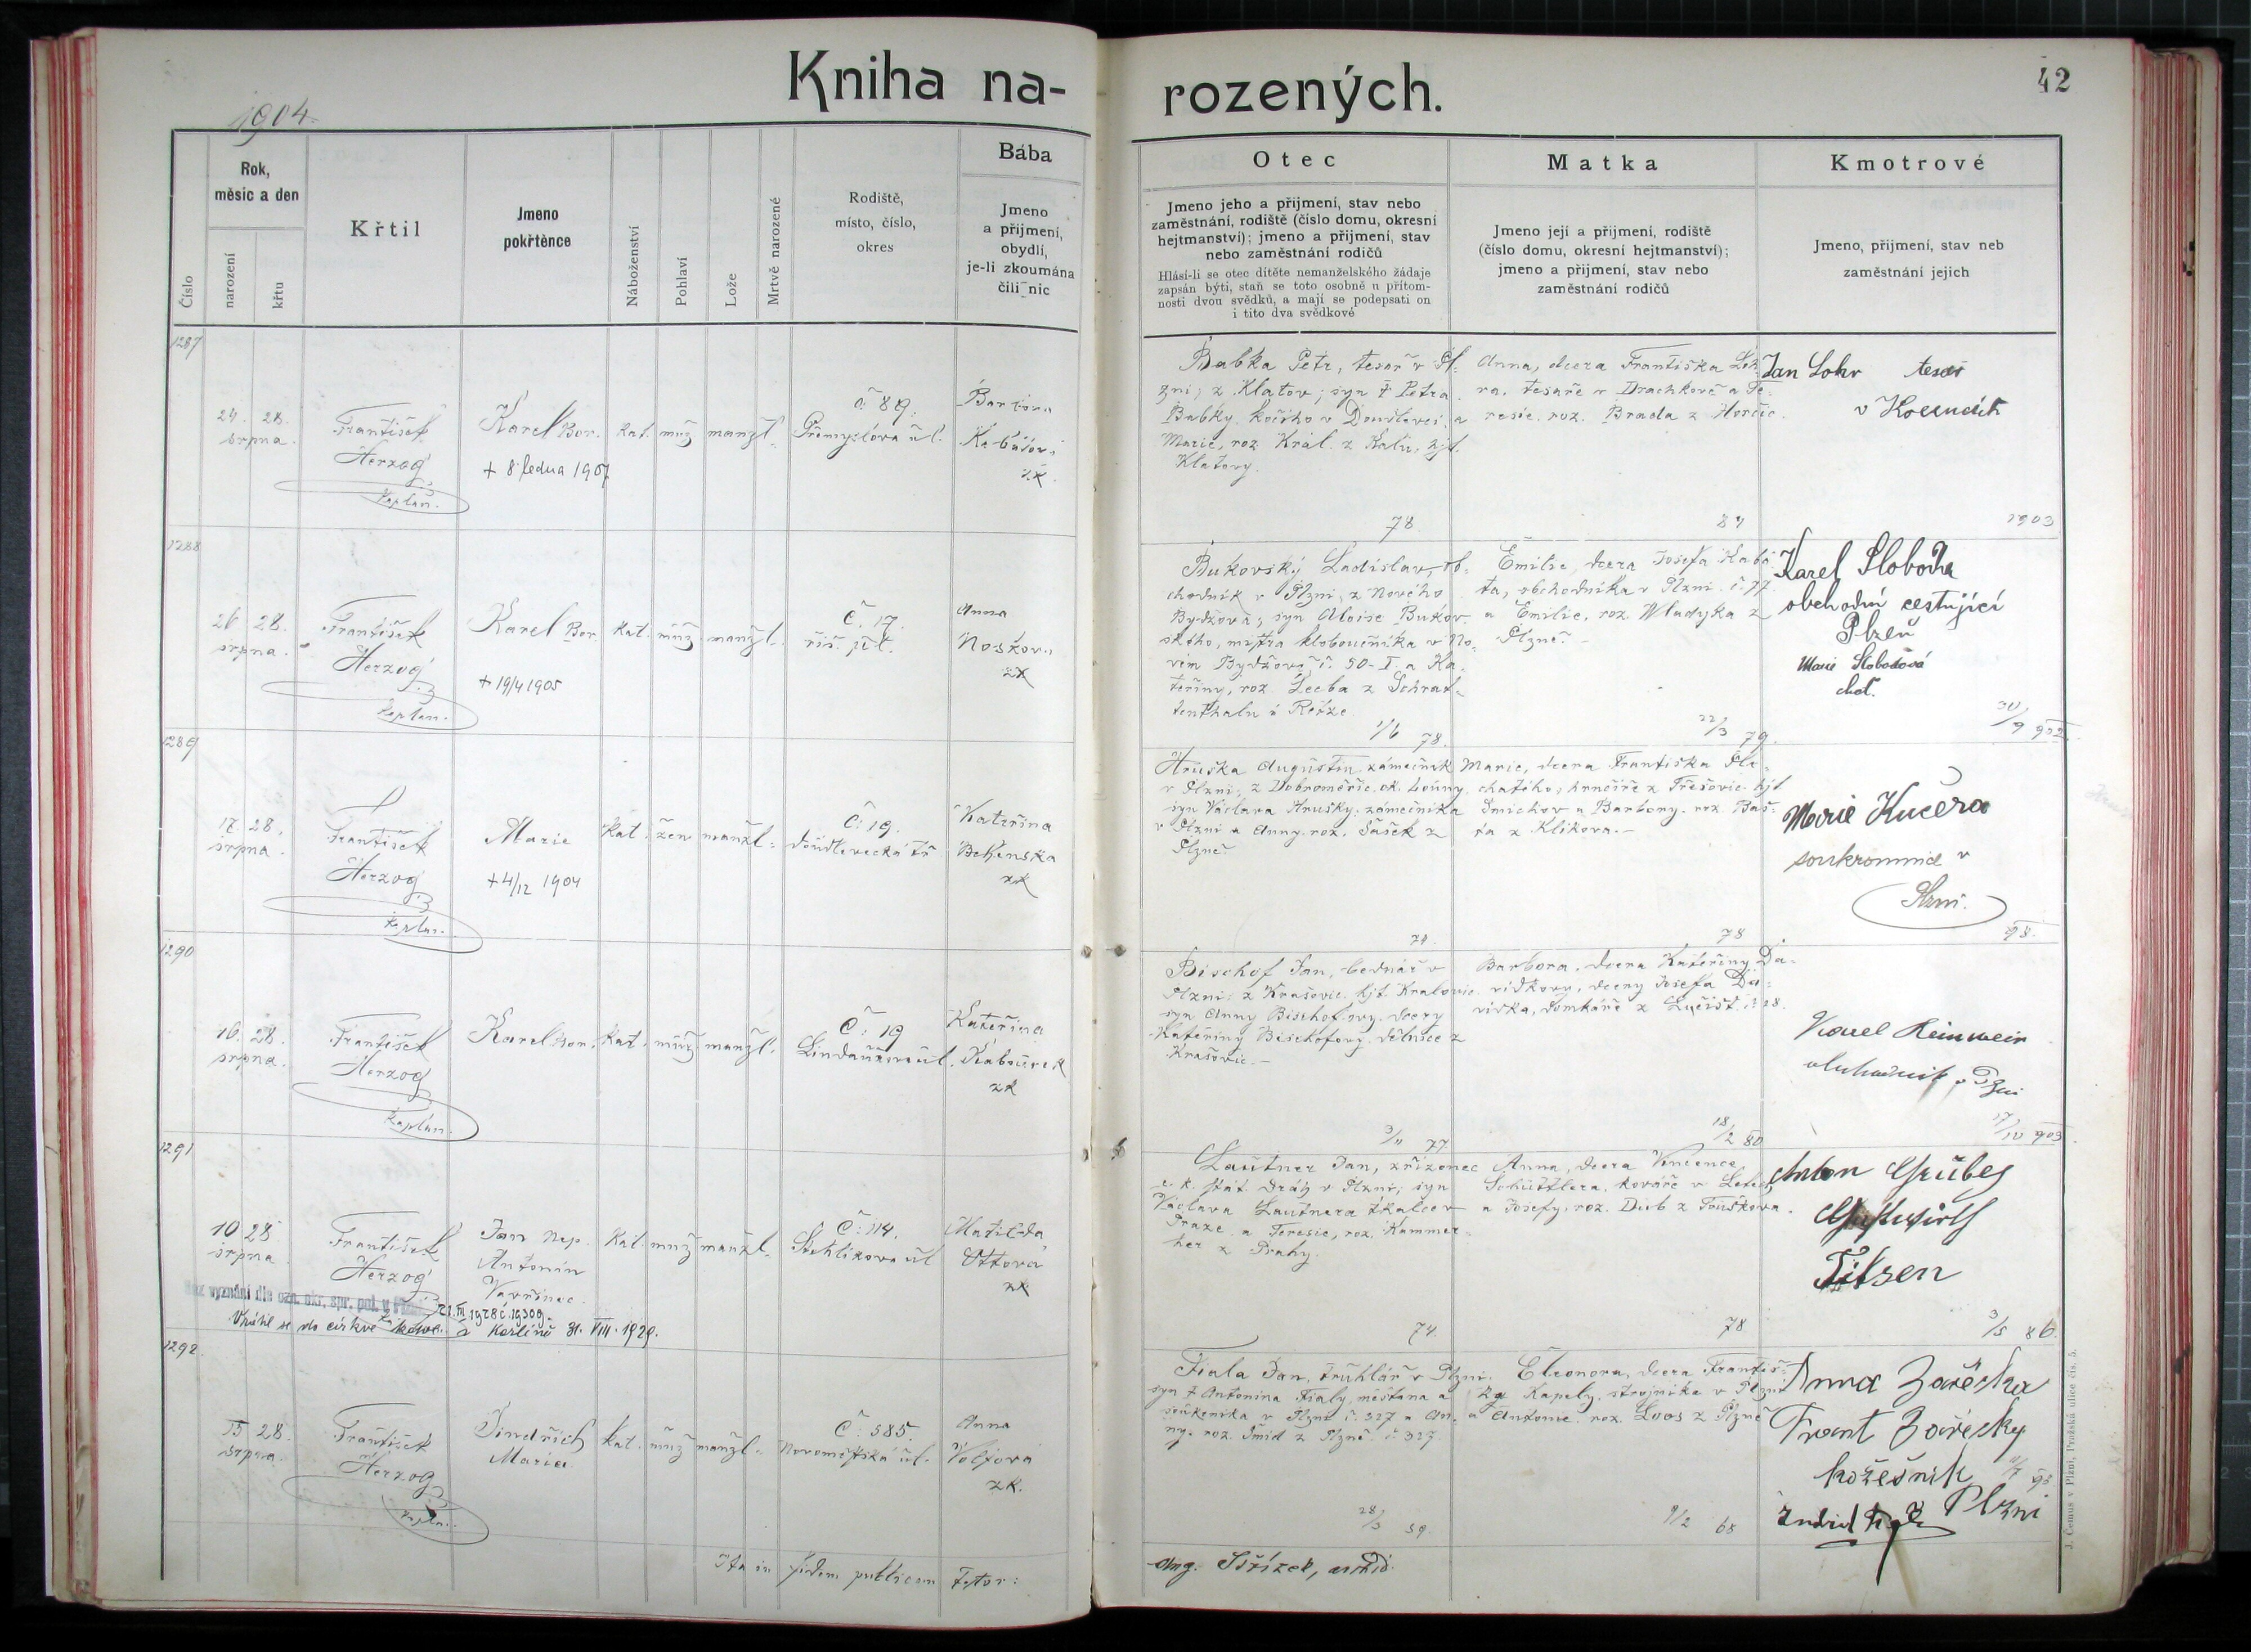 Kniha na-
rozených.
42
1904
Číslo
Rok,
měsíc a den
narození
křtu
Křtil
Jmeno
pokřtěnce
Náboženství
Pohlaví
Lože
Mrtvě narozené
Rodiště,
místo, číslo,
okres
Bába
Jmeno
a příjmení,
obydlí,
je-li zkoumána
čili nic
Otec
Jmeno jeho a přijmení, stav nebo
zaměstnání, rodiště (číslo domu, okresní
hejtmanství); jmeno a přijmení, stav
nebo zaměstnání rodičů
Hlásí-li se otec dítěte nemanželského žádaje
zapsán býti, staň se toto osobně u přítom-
nosti dvou svědků, a mají se podepsati on
i tito dva svědkové
Matka
Jmeno její a přijmení, rodiště
(číslo domu, okresní hejtmanství);
jmeno a přijmení, stav nebo
zaměstnání rodičů
Kmotrové
Jmeno, přijmení, stav neb
zaměstnání jejich
1287
24. 28.
srpna.
František
Herzog
kaplan.
Karel Bor.
+ 8 ledna 1907
kat.
muž
manžl.
č: 89.
Přemyslova ul.
Barbora
zk.
Babka Petr, tesař v Pl-
zni; z Klatov; syn † Petra
Babky, kočího v Doudlevci, a
Marie, roz. Král. z hjt.
Klatovy.
78
Anna, dcera Františka Loh-
ra, tesaře v Drachkově a Te-
resie, roz. Brada z Horčic.
Jan Lohr tesař
v
1903
1288
26 28.
srpna.
František
Herzog
kaplan.
Karel Bor.
+ 19/4 1905
kat.
muž
manžl.
č. 17.
řiš. př.
Anna
Noskov.
zk
Bukovský Ladislav, ob-
chodník v Plzni, z Nového
Bydžova; syn Aloise Bukov-
ského, mistra kloboučníka v No-
vém Bydžově č. 50-I. a Ka-
teřiny, roz. Lecba z Schrat-
tenthalu
1/6 78.
Emilie, dcera Josefa Kabá-
ta, obchodníka v Plzni č. 77
a Emilie, roz. Wladyka z
Plzně.-
22/3 79.
Karel Sloboda
obchodní cestující
Plzeň
Marie Slobodová
choť.
20/9 902
1289
17. 28.
srpna.
František
Herzog
kaplan.
Marie
+ 4/12 1904
kat.
žen
manžl.
č: 19.
doudlevecká tř.
Kateřina
zk
Hruška Augustin zámečník
v Plzni; z Dobroměřic, ok. Louny
syn Václava Hrušky, zámečníka
v Plzni a Anny, roz. Šašek z
Plzně.
Marie, dcera Františka Pla-
chatého, hrnčíře z Třešovic. hjt
Smíchov a Barbory, roz. Baš-
ta z Klikova.-
78
Marie Kučera
soukromnice v
Plzni.
98.
1290
16. 28.
srpna.
František
Herzog
kaplan.
Karel Bor.
kat.
muž
manžl.
Č: 19
Lindauerova ul.
Kateřina
Kabourek
zk
Bischof Jan, bednář v
Plzni; z Krašovic. hjt. Kralovic.
syn Anny Bischofovy, dcery
Kateřiny Bischofovy, dělnice z
Krašovic.-
3/11 77.
Barbora, dcera Kateřiny Da-
vídkovy, dcery Josefa Da-
vídka, domkáře z
18/2 80
Karel Heimwein
obchodník v Plzni
17/10 903
1291
10 28
srpna
František
Herzog
Jan Nep.
Antonín
Vavřinec.
kat.
muž
manžl.
Č: 114.
Stehlíkova ul
Matilda
Ottova
zk
Bez vyznání dle ozn. okr. spr. pol. v Plzni 21. III 1928 č. 19309.
Vrátil se do církve řk. kato. v Karlíně 31. VIII. 1929.
Lautner Jan, zřízenec
c. k. stát. dráhy v Plzni; syn
Václava Lautnera tkalce v
Praze, a Teresie, roz. Kammer-
her z Prahy.
74
Anna, dcera Vincence
Schüttlera, kováře v
a Josefy, roz. Dub z Touškova.
78
Anton Grüber
Gastwirth
Pilsen
3/5 86.
1292.
15 28.
srpna.
František
Herzog
kaplan
Jindřich
Maria
kat.
muž
manžl.
Č: 585.
Novoměstská ul.
Anna
Volfova
zk.
Fiala Jan, truhlář v Plzni.
syn † Antonína Fialy, měšťana a
soukeníka v Plzni č. 327 a An-
ny, roz. Šmíd z Plzně. č. 327.
28/3 59.
Eleonora, dcera Františ-
ka Kapely, strojníka v Plzni
a Antonie. roz. Loos z Plzně
9/2 68
Anna Zářecka
Frant Zářecky
kožešník
Plzni
Ita in fidem publicam Testor:
Aug. Střízek, arciid.
J. Černus v Plzni, Pražská ulice čís. 5.